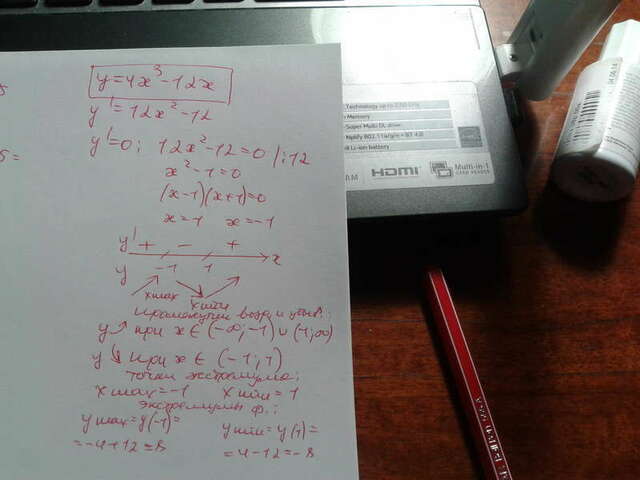 y=4x³-12x
y'=12x²-12
y'=0; 12x²-12=0 /:12
x²-1=0
(x-1)(x+1)=0
x=1 x=-1
y' + - +
x
y -1 1
x max x min
промежутки возр и убыв.:
y ↗ при x ∈ (-∞;-1) ∪ (1;∞)
y ↘ при x ∈ (-1;1)
точки экстремума:
x max=-1 x min=1
экстремумы ф.:
y max=y(-1)= y min=y(1)=
=-4+12=8 =4-12=-8
5=
Technology up to
Memory
Super Multi DL drive
802.11a/g/n + BT 4.0
Li-ion battery
HDMI Multi-in-1
CARD READER